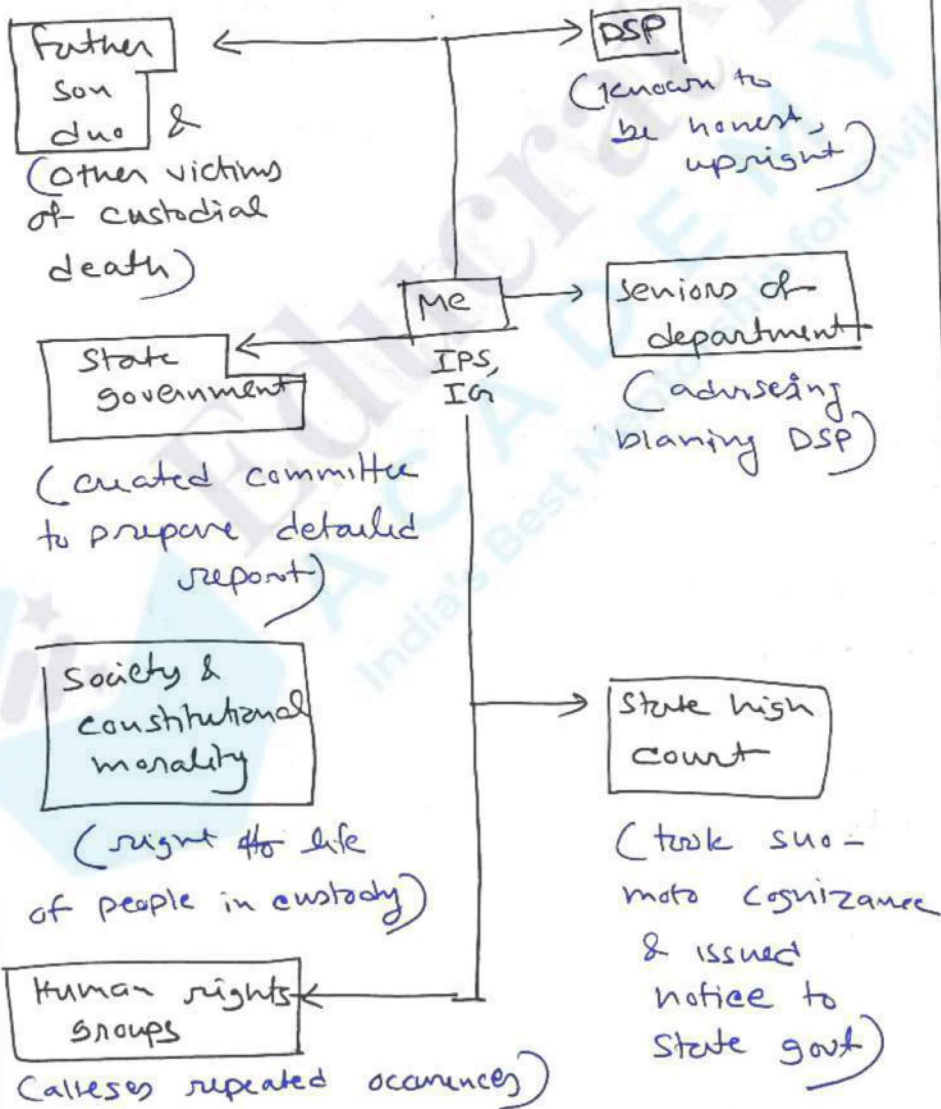 Father
son
duo &
(other victims
of custodial
death)
DSP
(known to
be honest,
upright)
Me
IPS,
IG
seniors of
department
(adviseing
blaming DSP)
State
government
(created committee
to prepare detailed
report)
Society &
constitutional
morality
(right to life
of people in custody)
State high
court
(took suo-
moto cognizance
& issued
notice to
State govt)
Human rights
groups
(alleges repeated occurences)
Educrat
ACADEMY
India's Best Mentorship for Civil